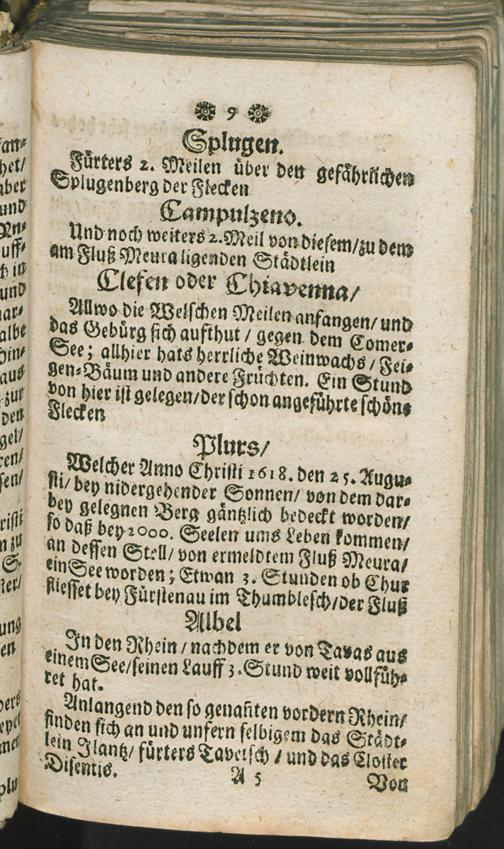 ❁ 9 ❁
Splugen.
Fürters 2. Meilen über den gefährlichen
Splugenberg der Flecken
Campulzeno.
Und noch weiters 2. Meil von diesem/ zu dem
am Fluß Meura ligenden Städtlein
Clefen oder Chiavenna/
Allwo die Welschen Meilen anfangen/ und
das Gebürg sich aufthut / gegen dem Comer-
See; allhier hats herrliche Weinwachs / Fei-
gen-Bäum und andere Früchten. Ein Stund
von hier ist gelegen/ der schon angeführte schöne
Flecken
Plurs/
Welcher Anno Christi 1618. den 25. Augu-
sti/ bey nidergehender Sonnen/ von dem dar-
bey gelegnen Berg gäntzlich bedeckt worden/
so daß bey 2000. Seelen ums Leben kommen/
an dessen Stell/ von ermeldtem Fluß Meura/
ein See worden; Etwan 3. Stunden ob Chur
fliesset bey Fürstenau im Thumblesch/ der Fluß
Albel
In den Rhein / nachdem er von Tavas aus
einem See/ seinen Lauff 3. Stund weit vollfüh-
ret hat.
Anlangend den so genañten vordern Rhein/
finden sich an und unfern selbigem das Städt-
lein Jlantz/ fürters Tavetsch / und das Closter
Disentis.
A 5
Von